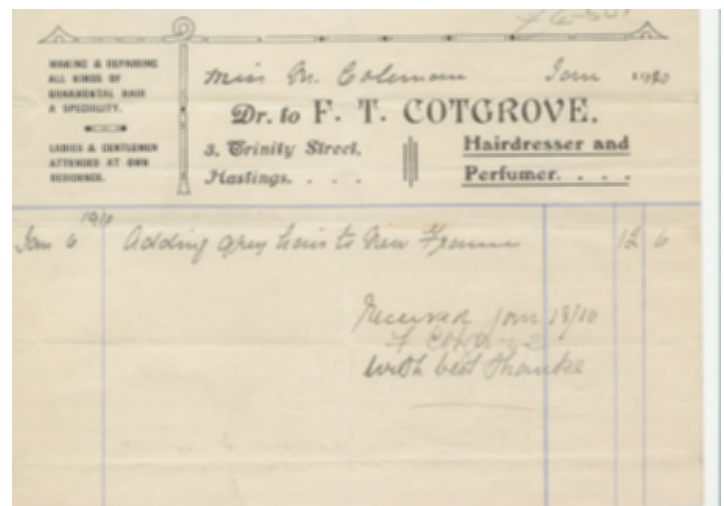 MAKING & REPAIRING
ALL KINDS OF
ORNAMENTAL HAIR
A SPECIALITY.
LADIES & GENTLEMEN
ATTENDED AT OWN
RESIDENCE.
Miss M. Coleman Jan 1910
Dr. to F. T. COTGROVE,
3, Trinity Street, Hairdresser and
Hastings. . . . Perfumer. . . .
1910
Jan 6 Adding grey hair to New Frame 12 6
Received Jan 18/10
F
with best thanks